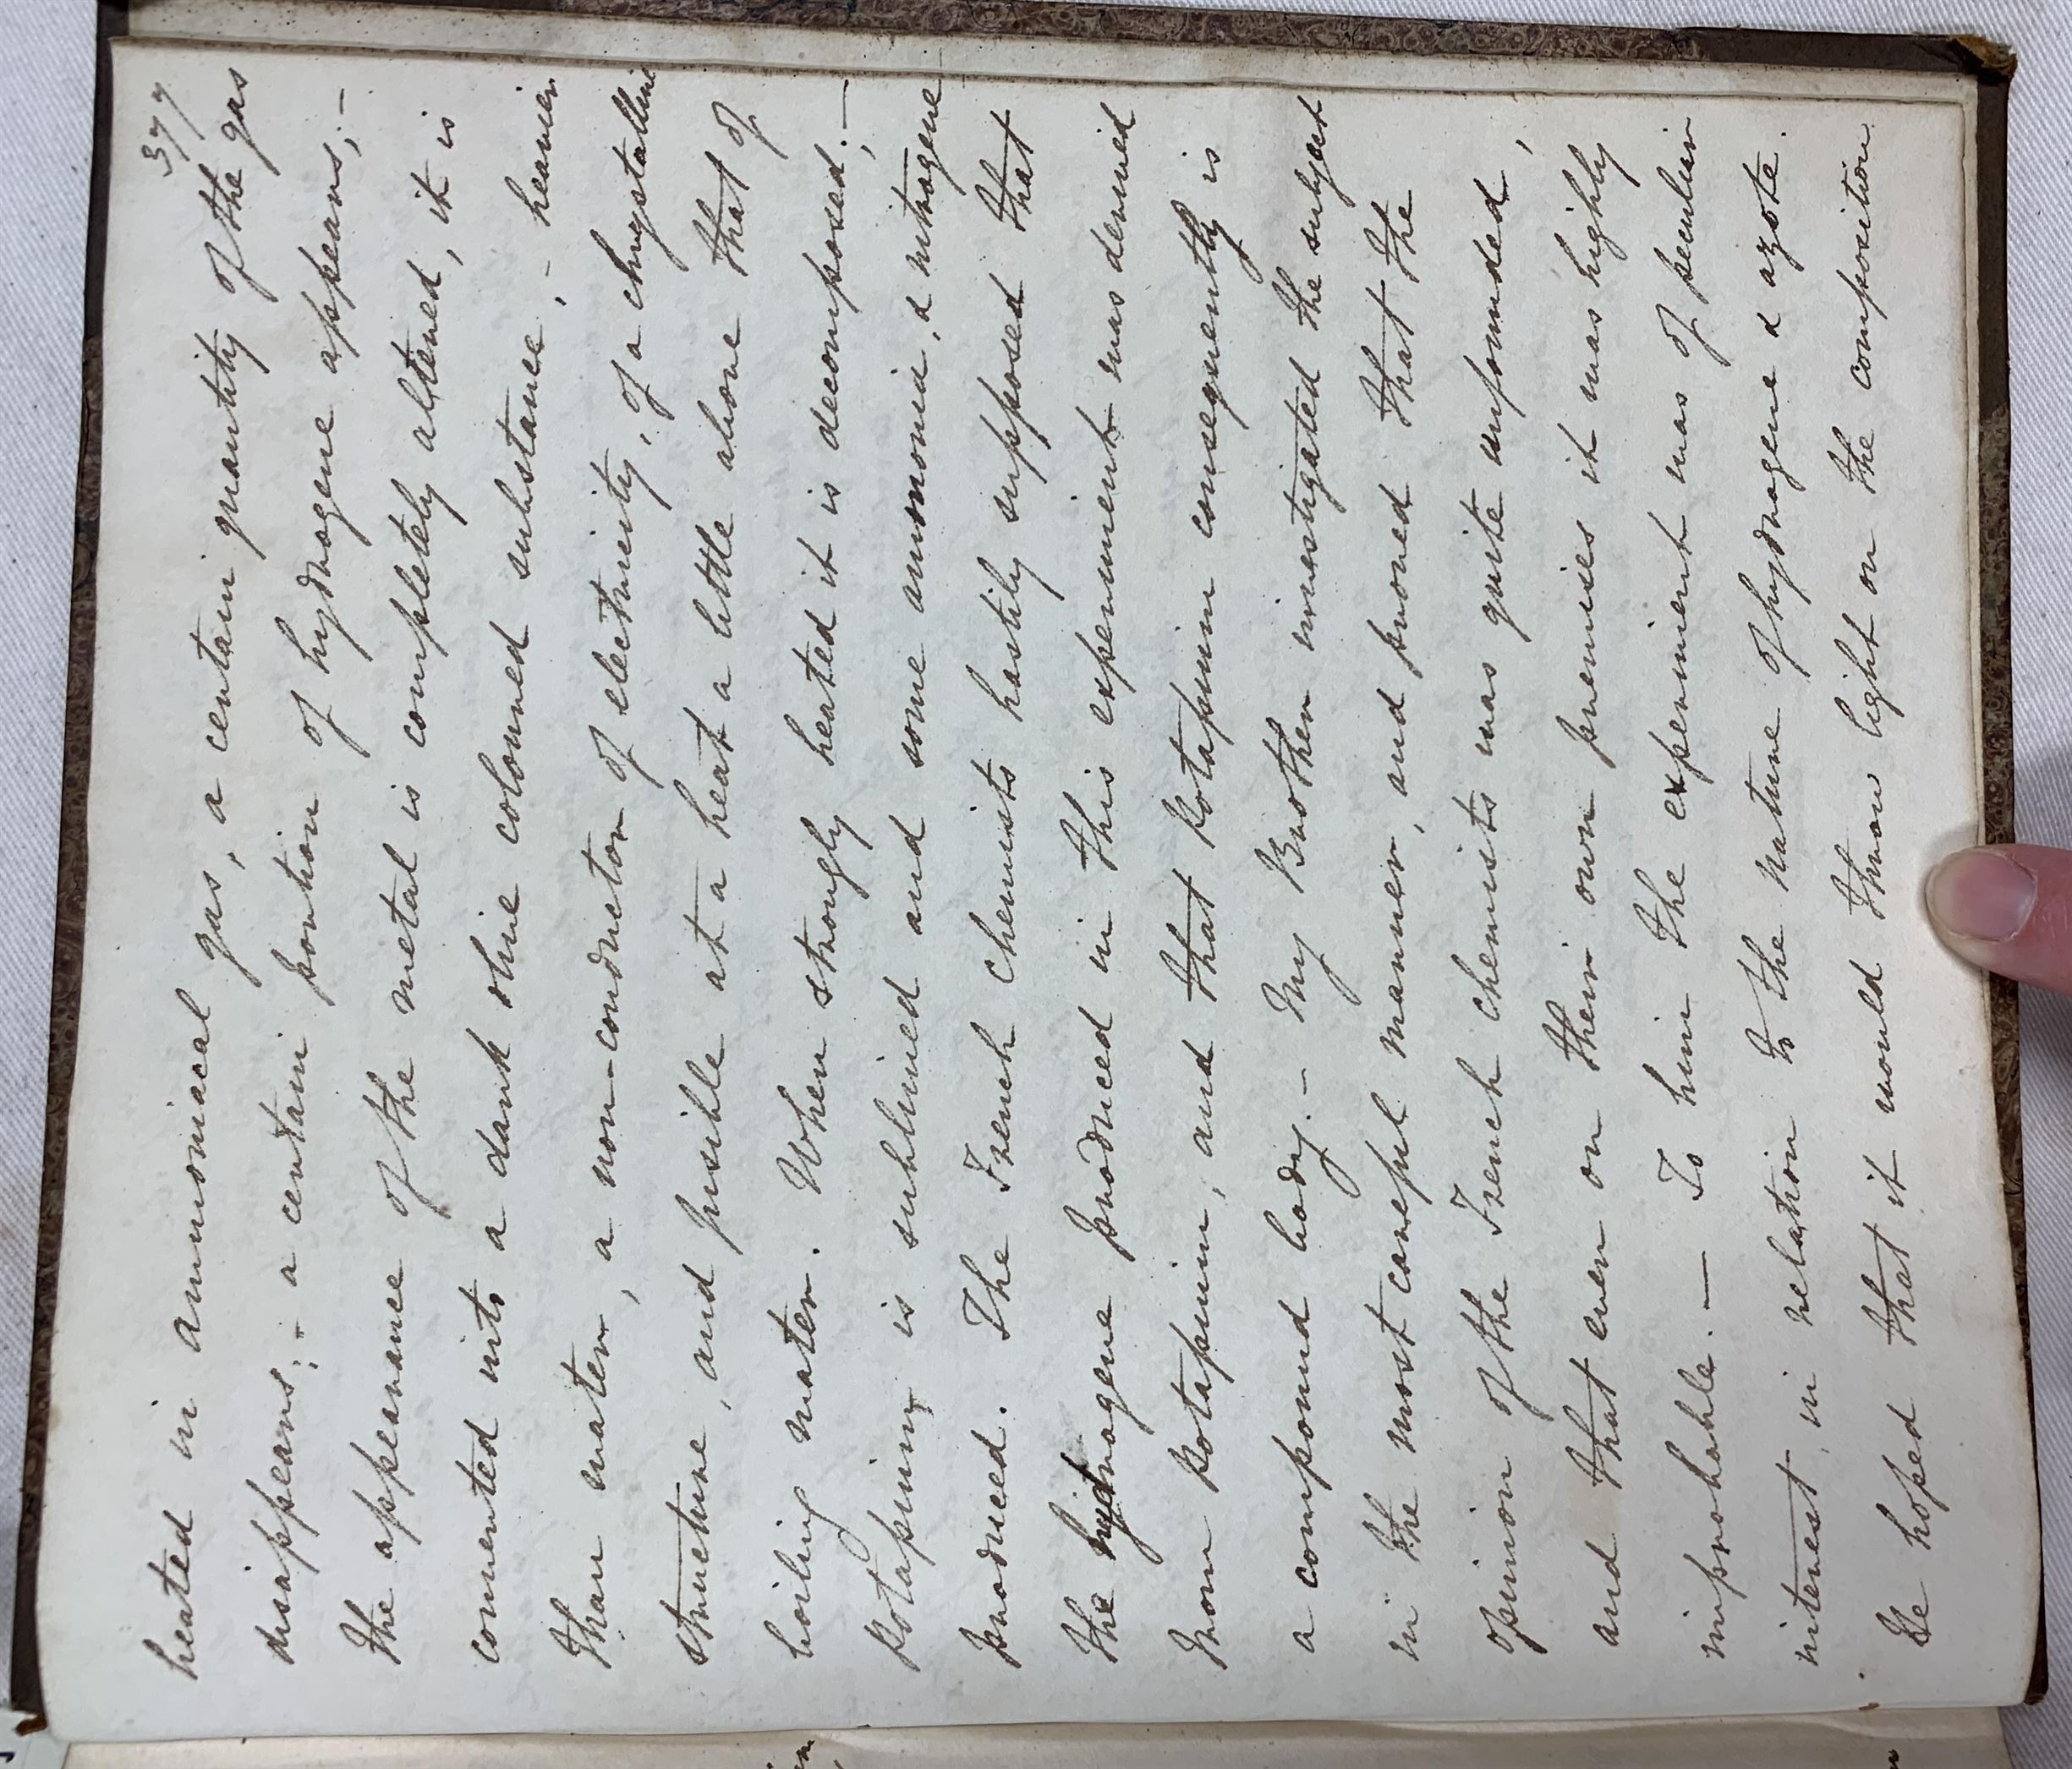 377
heated in ammoniacal gas, a certain quantity of the gas
disappears; - a certain portion of hydrogene appears; -
the appearance of the metal is completely altered, it is
converted into a dark olive coloured substance, - heavier
than water, a non-conductor of electricity, of a chrystalline
structure, and fusible at a heat a little above that of
boiling water. When strongly heated it is decomposed; -
Potassium is sublimed and some ammonia, & nitrogene
produced. The French Chemists hastily supposed that
the hydrogene produced in this experiment was derived
from Potassium, and that Potassium consequently is
a compound body. - My Brother investigated the subject
in the most careful manner, and proved that the
opinion of the French Chemists was quite unfounded,
and that even on their own premises it was highly
improbable. — To him the experiment was of peculiar
interest, in relation to the nature of hydrogene & azote.
He hoped that it would throw light on the composition